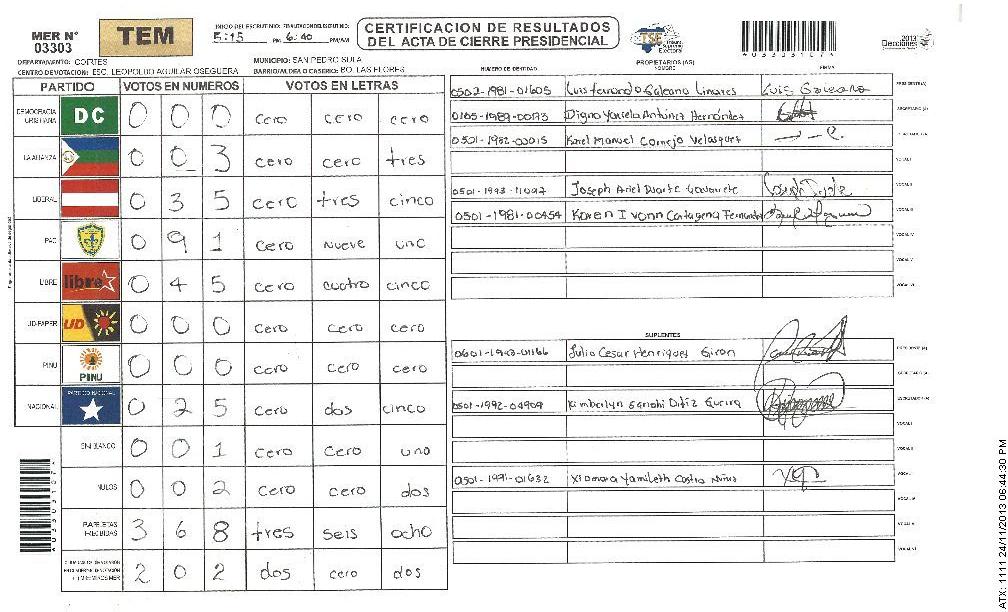 MER Nº 03303
TEM
INICIO DEL ESCRUTINIO: FINALIZACION DEL ESCRUTINIO:
5:15 PM 6:40 PM/AM
CERTIFICACION DE RESULTADOS
DEL ACTA DE CIERRE PRESIDENCIAL
TSE Tribunal Supremo Electoral
2013 Elecciones
DEPARTAMENTO: CORTES
MUNICIPIO: SAN PEDRO SULA
CENTRO DE VOTACION: ESC. LEOPOLDO AGUILAR OSEGUERA
BARRIO/ALDEA O CASERIO: BO. LAS FLORES
PARTIDO VOTOS EN NUMEROS VOTOS EN LETRAS
DEMOCRACIA CRISTIANA DC 0 0 0 cero cero cero
LA ALIANZA 0 0 3 cero cero tres
LIBERAL 0 3 5 cero tres cinco
PAC 0 9 1 cero nueve uno
LIBRE libre 0 4 5 cero cuatro cinco
UD-FAPER UD 0 0 0 cero cero cero
PINU PINU 0 0 0 cero cero cero
NACIONAL PARTIDO NACIONAL 0 2 5 cero dos cinco
EN BLANCO 0 0 1 cero cero uno
NULOS 0 0 2 cero cero dos
PAPELETAS RECIBIDAS 3 6 8 tres seis ocho
2 0 2 dos cero dos
NUMERO DE IDENTIDAD PROPIETARIOS (AS) NOMBRE FIRMA
0502-1981-01605 Luis Fernando Galeano Linares Luis Galeano PRESIDENTE(A)
0105-1989-00173 Digna Yariela Antunez Hernández SECRETARIO (A)
0501-1982-00015 Karel Manuel Cornejo Velasquez
VOCAL I
0501-1993-11097 Joseph Ariel Duarte VOCAL II
0501-1981-00454 Karen Ivonn Cartagena Fernandez VOCAL III
VOCAL IV
VOCAL V
VOCAL VI
SUPLENTES
0601-1943-01166 Julio Cesar Henriquez Giron PRESIDENTE (A)
SECRETARIO (A)
0501-1992-04909 Kimberlyn Ortiz ESCRUTADOR (A)
VOCAL I
VOCAL II
0501-1991-01632 Xiomara Yamileth Castro VOCAL III
VOCAL IV
VOCAL V
VOCAL VI
AU33031074
AU33031074
ATX: 1111 24/11/2013 06:44:30 PM